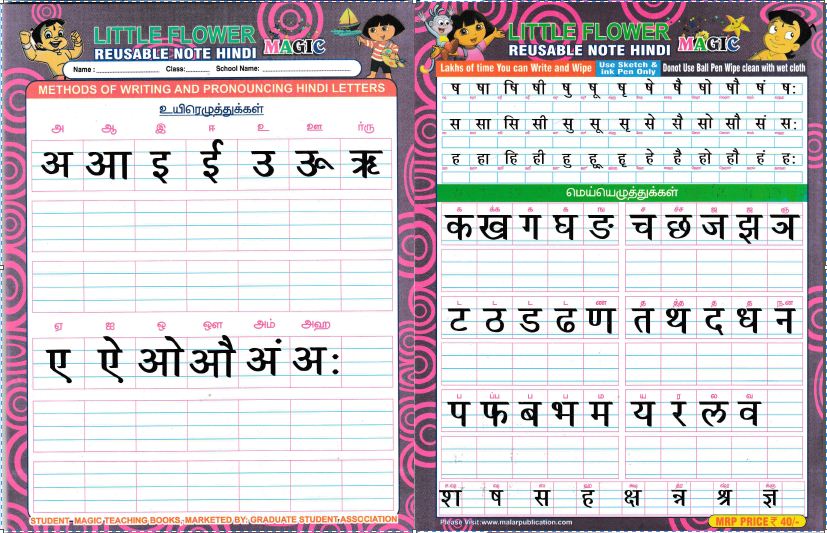 LITTLE FLOWER
REUSABLE NOTE HINDI MAGIC
Name : Class: School Name:
METHODS OF WRITING AND PRONOUNCING HINDI LETTERS
உயிரெழுத்துக்கள்
அ ஆ இ ஈ உ ஊ ர்ரு
अ आ इ ई उ ऊ ऋ
ஏ ஐ ஒ ஔ அம் அஹ
ए ऐ ओ औ अं अः
STUDENT MAGIC TEACHING BOOKS, MARKETED BY: GRADUATE STUDENT ASSOCIATION
LITTLE FLOWER
REUSABLE NOTE HINDI MAGIC
Lakhs of time You can Write and Wipe Use Sketch & Ink Pen Only Donot Use Ball Pen Wipe clean with wet cloth
ष षा षि षी षु षू षृ षे षै षो षौ षं षः
स सा सि सी सु सू सृ से सै सो सौ सं सः
ह हा हि ही हु हू हृ हे है हो हौ हं हः
மெய்யெழுத்துக்கள்
க க்க க க ங ச ச்ச ஜ ஜ ஞ
क ख ग घ ङ च छ ज झ ञ
ட ட ட ட ண த த்த த த ந,ன
ट ठ ड ढ ण त थ द ध न
ப ப்ப ப ப ம ய ர ல வ
प फ ब भ म य र ल व
श ष स ह क्ष त्र श्र ज्ञ
Please Visit:www.malarpublication.com
MRP PRICE ₹ 40/-